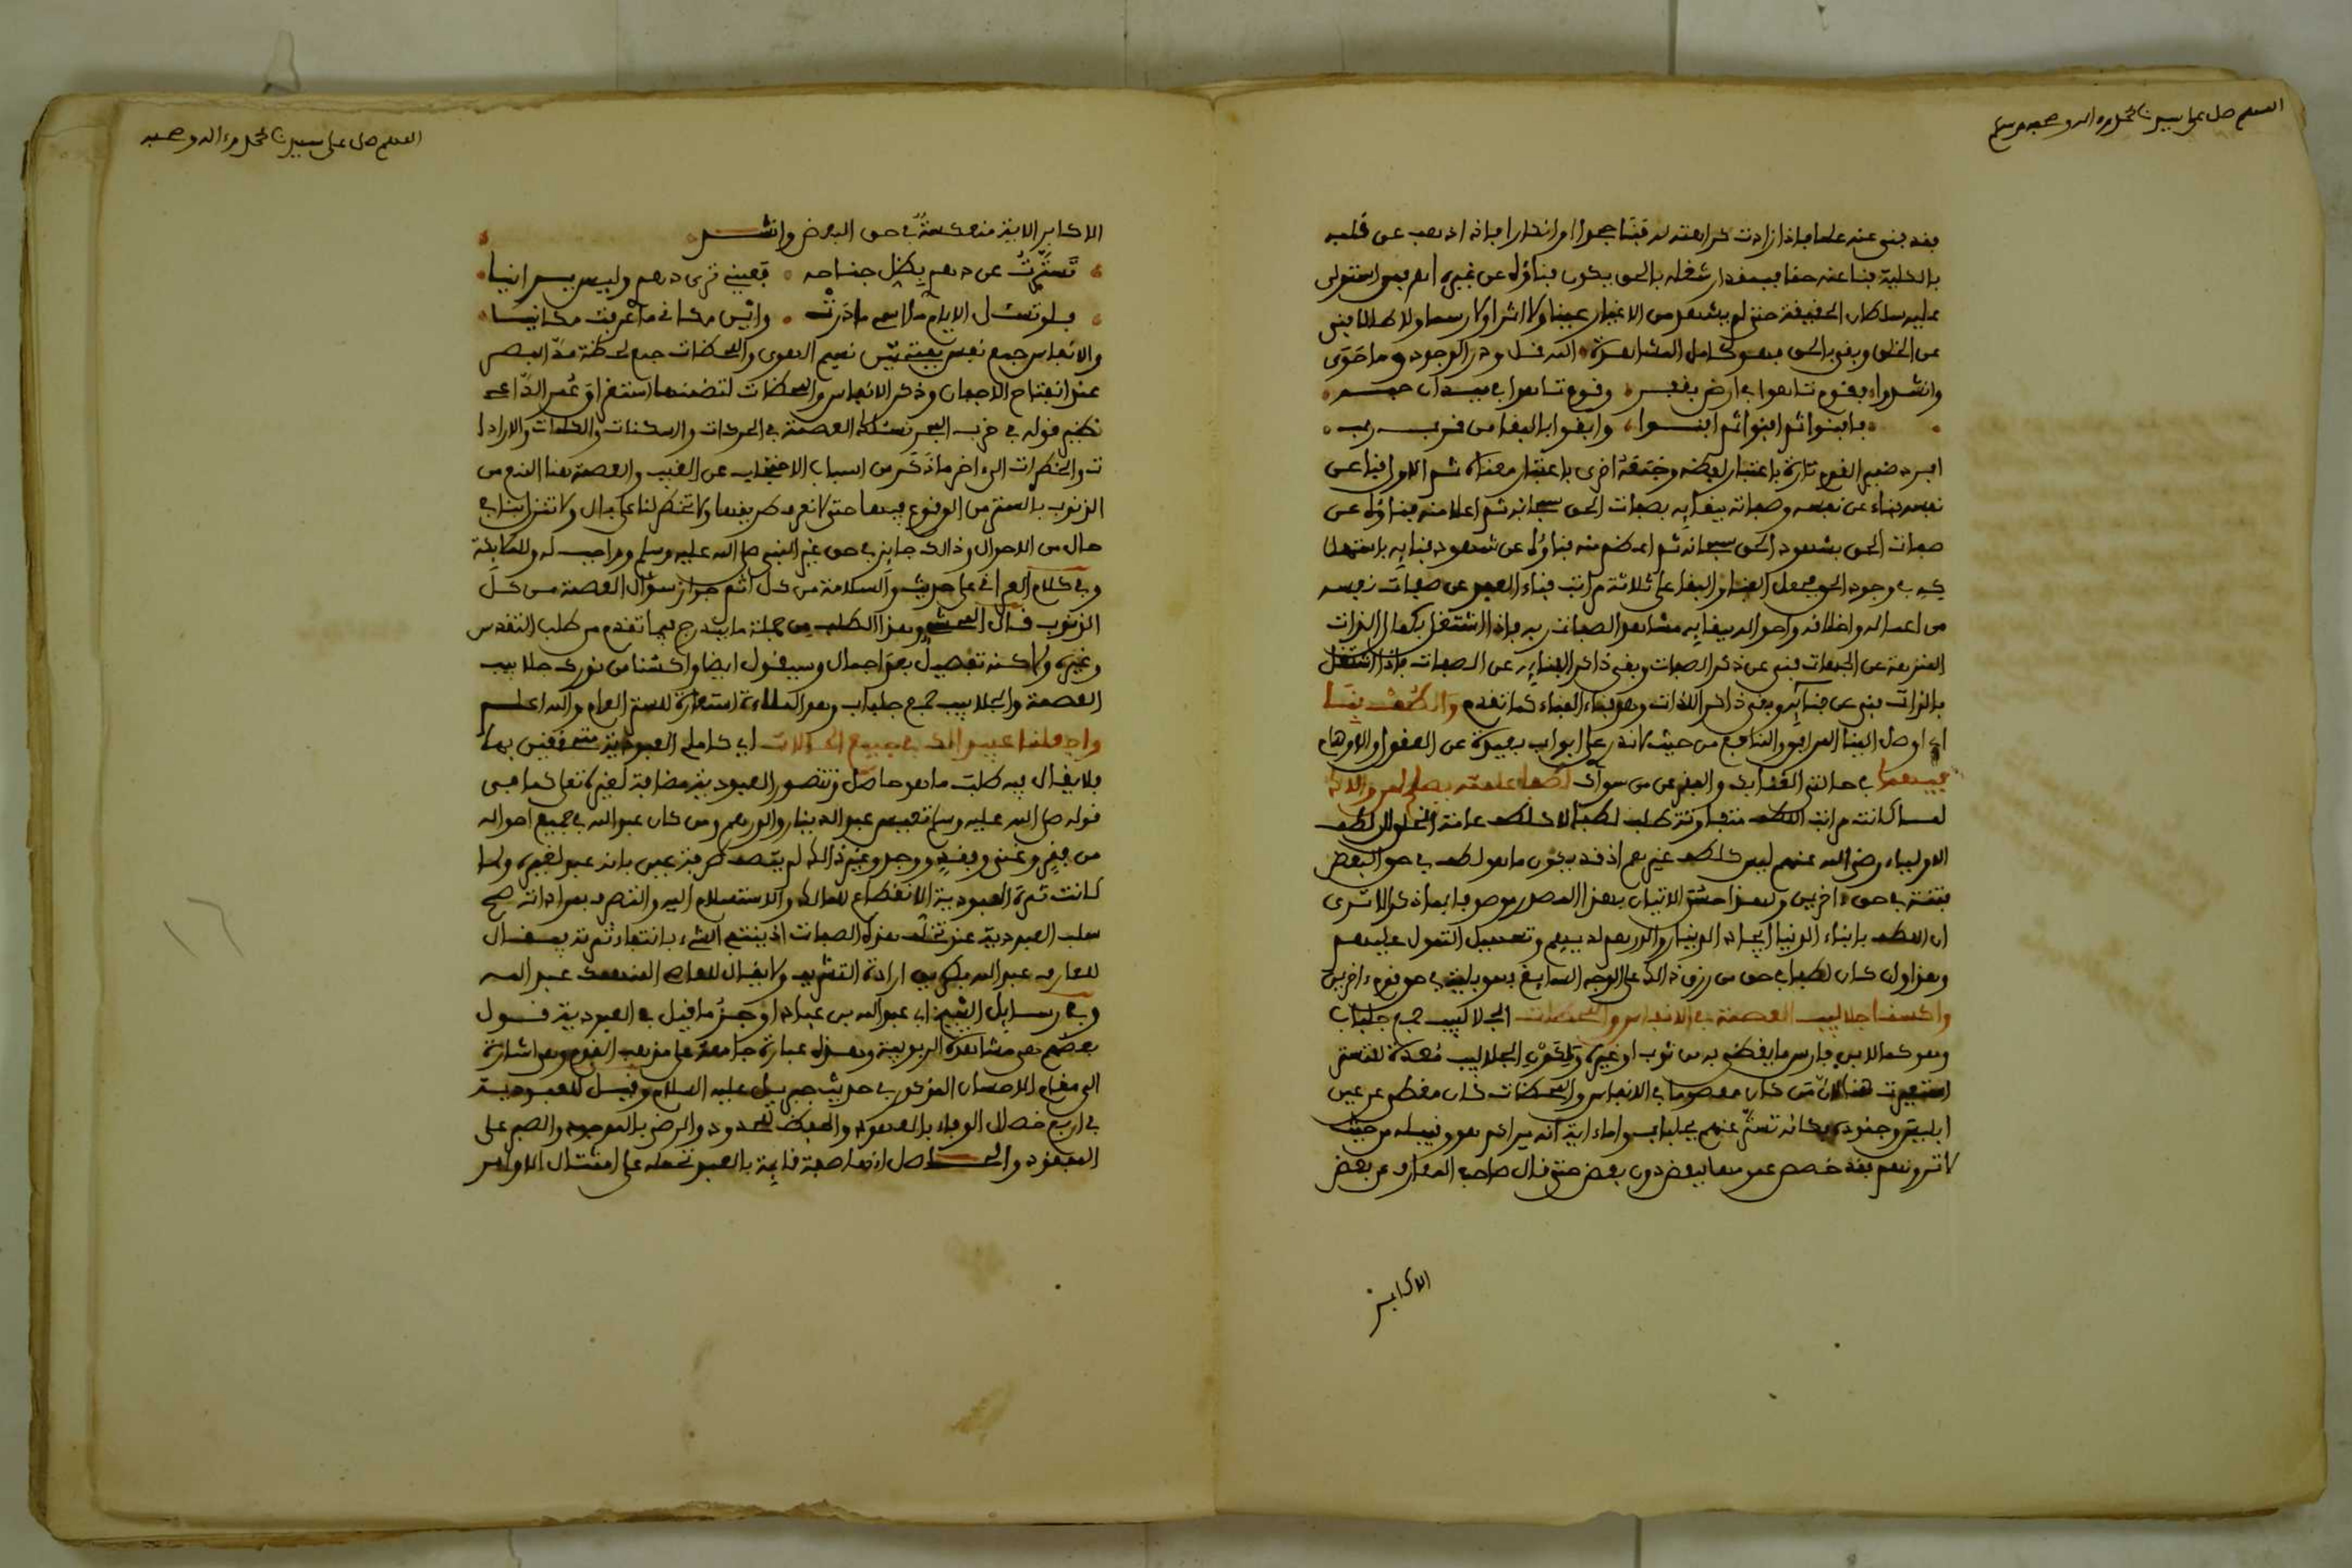 اللهم صل على سيدنا محمد وءاله وصحبه وسلم
فقد فنى عنه علما فاذا زادت كراهته له فيناجموا او انكارا فاذا اذهب عن قلبه
بالكلية فنا عنه حقا فبمقدار شغله بالحق يكون فناؤه عن غيره اهـ فمن استولى
عليه سلطان الحقيقة حتى لم يشهد من الاغيار عينا ولا اثرا ولا رسما ولا طللا فنى
عن الخلق وبقى بالحق فهو كامل المشاهدة الله قل وذر الوجود وما حوى
وانشدوا فقوم تاهوا فى ارض بقفر وقوم تاهوا فى ميدان حبه
فافنوا ثم افنوا ثم افنوا وابقوا بالبقا من قرب ربه
افرد ضمير القوم تارة باعتبار لفظه وجمعه اخرى باعتبار معناه ثم الاول فنا عن
نفسه فناء عن نفسه وصفاته ببقايه بصفات الحق سبحانه ثم اعلا منه فناؤه عن
صفات الحق بشهود الحق سبحانه ثم اعظم منه فناؤه عن شهود فنايه باستهلا
كه فى وجود الحق فجعل الفنا والبقا على ثلاثة مراتب فناء العبد عن صفات نفسه
من اعماله واخلاقه واحواله ببقايه مشاهدا لصفات ربه فاذا اشتغل بكمال الذات
المنزهة عن الجهات فنى عن ذكر الصفات وبقى ذاكر الفنايه عن الصفات فاذا اشتغل
بالذات فنى عن فنايه وبقى ذاكر اللذات وهو فناء الفناء كما تقدم والطف بنا
اى اوصل الينا المرافق والمنافع من حيث لا ندر على ابواب بعيدة عن العقول والاوهام
فيهما فى حالتى الفنا بك والبقا عن من سواك لطفا علمته يصلح لمن والاك
لما كانت مراتب اللطف متفاوتة طلب لطفا لا كلطف عامة الخلق لان لطف
الاولياء رضى الله عنهم ليس كلطف غيرهم اذ قد يكون ما هو لطف فى حق البعض
فتنة فى حق ءاخرين ولهذا حسن الاتيان بهذا المصدر موصوفا بما ذكر الا ترى
ان اللطف بابناء الدنيا ايجاد الدينار والدرهم لديهم وتسهيل التمول عليهم
وهذا وان كان لطفا فى حق من رزق ذالك على الوجه السابغ فهو بلية فى حق قوم ءاخرين
واكسنا جلابيب العصمة فى الانفاس واللحظات الجلابيب جمع جلباب
وهو كما لابن فارس ما يغطى به من ثوب او غيره ولكون الجلابيب معدة للتستر
استعيرت هنا لان من كان معصوما فى الانفاس واللحظات كان مغطى عن عين
ابليس وجنوده وكانه تستر عنهم بجلباب سواءاية انه يراكم هو وقبيله من حيث
لا ترونهم فقد خصص عمومها ببعض دون بعض حتى قال صاحب المعارف عن بعض
الاكابر
اللهم صل على سيدنا محمد وءاله وصحبه
الاكابر الاية منعكسة فى حق البعض وانشد
تسترت عن دهرى بظل جناحه فعينى ترى دهرى وليس يرانيا
فلو تسأل الايام ما اسمى ما درت واين مكانى ما عرفن مكانيا
والانفاس جمع نفس بفتحتين نسيم الهوى واللحظات جمع لحظة مد البصر
عند انفتاح الاجفان وذكر الانفاس واللحظات لتضمنها استغراق عمر الداعى
نظير قوله فى حزب البحر نسئلك العصمة فى الحركات والسكنات والكلمات والارادا
ت والخطرات الى ءاخر ما ذكر من اسباب الاحتجاب عن الغيب والعصمة هنا المنع من
الذنوب بالستر من الوقوع فيها حتى لا نعرف طريقها ولا تخطر لنا على بال ولا تنزل بنا فى
حال من الاحوال وذالك جايز فى حق غير النبى صلى الله عليه وسلم وواجب له وللملايكة
وفى كلام العراقى على حديث والسلامة من كل اثم جواز سؤال العصمة من كل
الذنوب قال المحشى وهذا الطلب من جملة ما يندرج فيما تقدم من طلب التقدس
وغيره ولاكنه تفصيل بعد اجمال وسيقول ايضا واكسنا من نورك جلابيب
العصمة والجلابيب جمع جلباب وهو الملاءة استعارة للستر العام والله اعلم
واجعلنا عبيدا لك فى جميع الحالات اى كاملى العبودية متحققين بها
فلا يقال فيه طلب ما هو حاصل وتتصور العبودية مضافة لغيره تعالى كما فى
قوله صلى الله عليه وسلم تعس عبد الدينار والدرهم ومن كان عبد الله فى جميع احواله
من فقر وغنى وفقد ووجد وغير ذالك لم يتصف طرفة عين بانه عبد لغيره ولما
كانت ثمرة العبودية الانقطاع للمالك والاستسلام اليه والتصرف بمراداته صح
سلب العبودية عند تخلف هذه الصفات اذ ينتفى الشىء بانتفاء ثمرته فيقال
للعارف عبد الله ارادة التشريف ولا يقال للعاصى المنهمك عبد الله
وفى رسايل الشيخ ابى عبد الله بن عباد اوجز ما قيل فى العبودية قول
بعضهم هى مشاهدة الربوبية وهذه عبارة جامعة على مذهب القوم وهى اشارة
الى مقام الاحسان المذكور فى حديث جبريل عليه السلام وقيل للعبودية
فى اربع خصال الوفاء بالعهود والحفظ للحدود والرضى بالموجود والصبر على
المفقود والحاصل انها صفة قايمة بالعبد تحمله على امتثال الاوامر